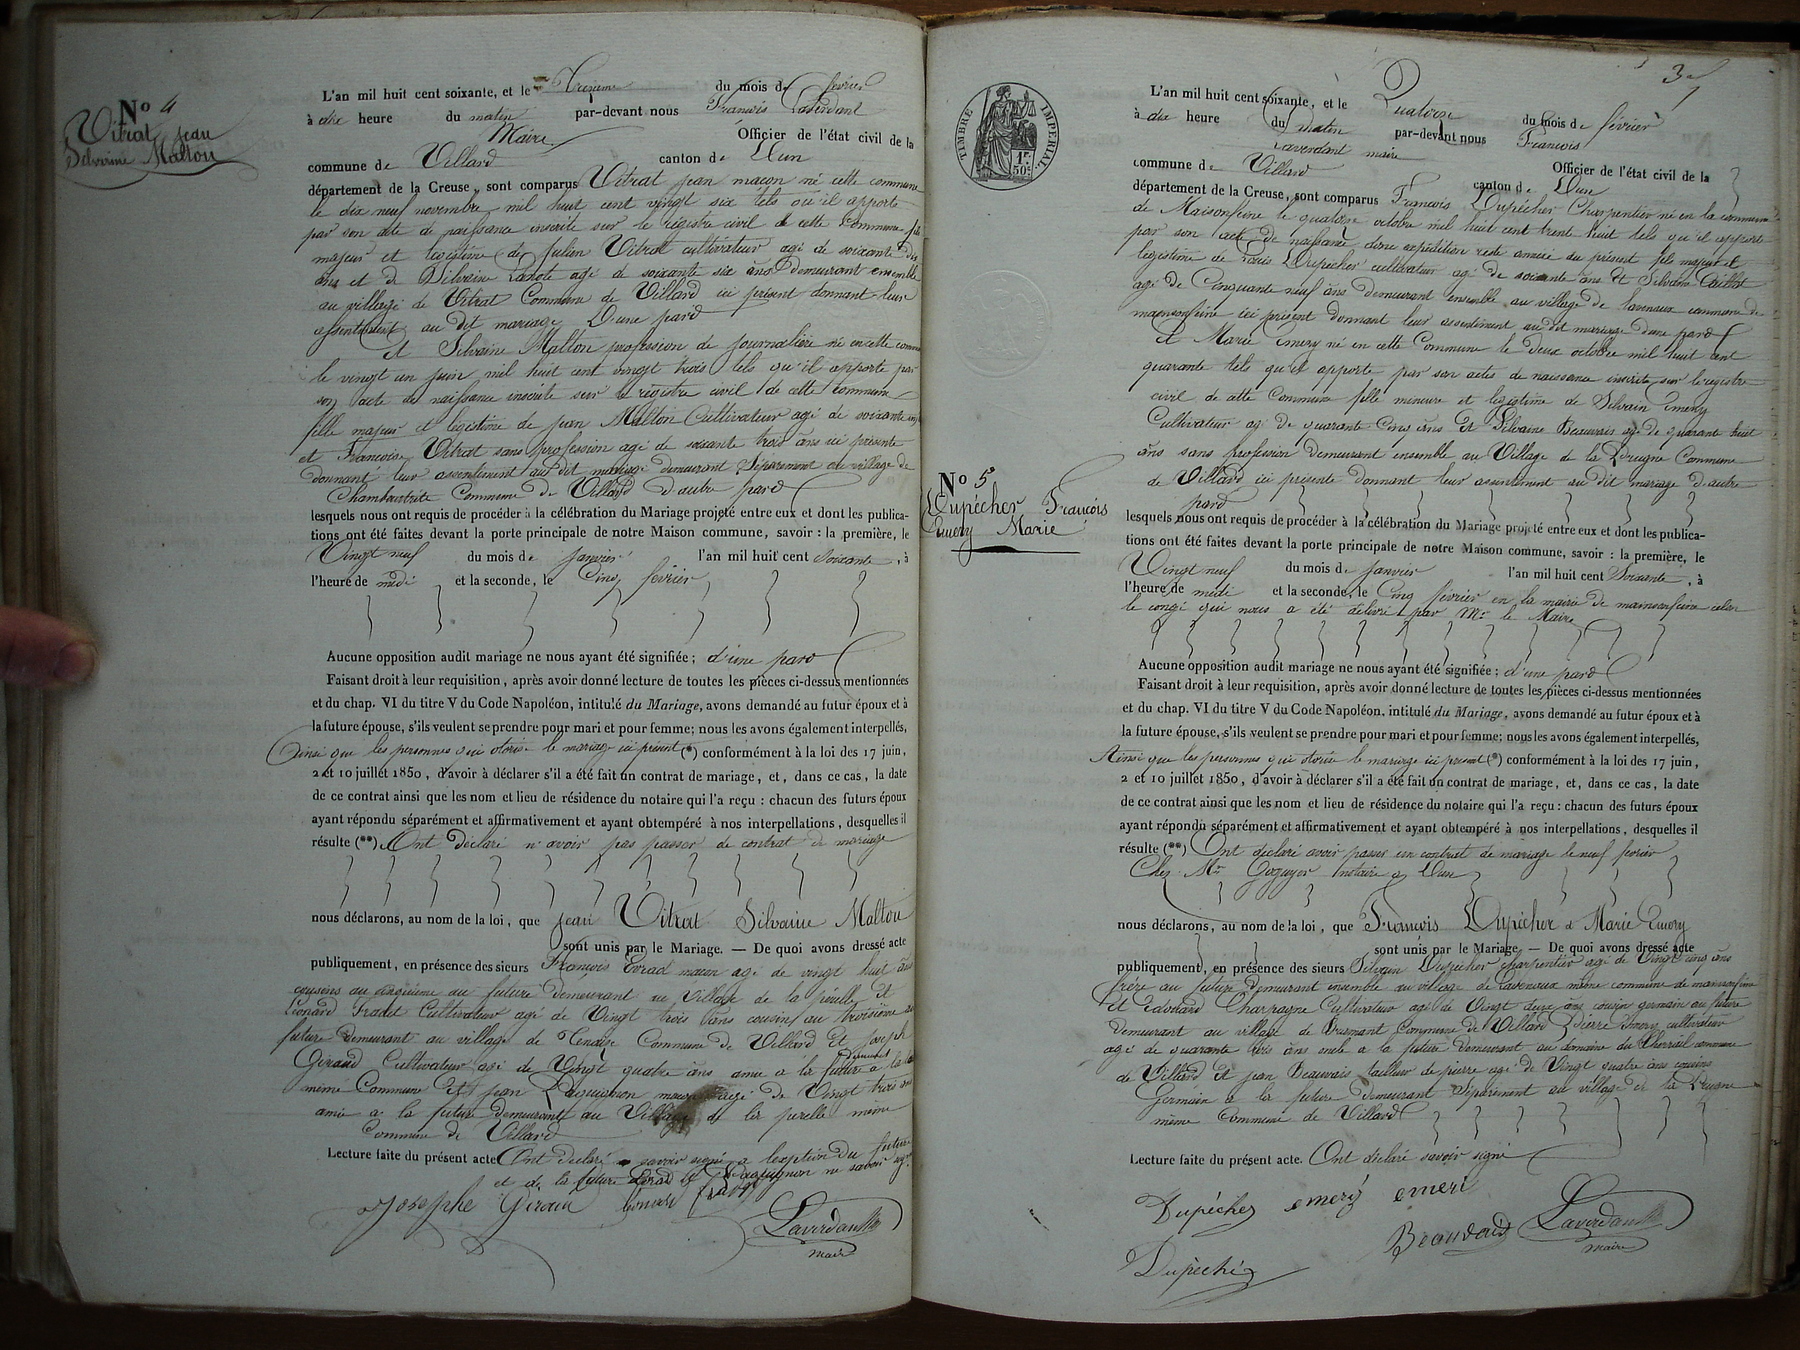 No 4
Vitrat jean
Silvaine Malton
L'an mil huit cent soixante, et le Treizieme du mois de février
à dix heure du matin par-devant nous François Laverdant
Maire Officier de l'état civil de la
commune de Villard canton de Dun
département de la Creuse, sont comparus Vitrat jean macon né cette commune
le dix neuf novembre mil huit cent vingt six tels où il apporte
par son acte de naissance inscrite sur le registre civil de cette Commune fils
majeur et legistime de julien Vitrat cultivateur agé de soixante dix
ans et de Silvaine agé de soixante six ans demeurant ensemble
au village de Vitrat Commune de Villard ici présent donnant leur
assentiment au dit mariage D'une pard
et Silvaine Malton profession de journalière né en cette commune
le vingt un juin mil huit cent vingt trois tels qu'il apporte par
son acte de naissance inscrite sur le registre civil de cette commune
fille majeur et legistime de jean Malton Cultivateur agé de soixante
et Françoise Vitrat sans profession agé de soixante trois ans ici présente
donnant leur assentiment au dit mariage demeurant Séparement au village de
Commune de Villard d'autre pard
lesquels nous ont requis de procéder à la célébration du Mariage projeté entre eux et dont les publica-
tions ont été faites devant la porte principale de notre Maison commune, savoir : la première, le
Vingt neuf du mois de janvier l'an mil huit cent soixante, à
l'heure de midi et la seconde, le Cinq février
Aucune opposition audit mariage ne nous ayant été signifiée; d'une pard
Faisant droit à leur requisition, après avoir donné lecture de toutes les pièces ci-dessus mentionnées
et du chap. VI du titre V du Code Napoléon, intitulé du Mariage, avons demandé au futur époux et à
la future épouse, s'ils veulent se prendre pour mari et pour femme; nous les avons également interpellés,
Ainsi que les personnes qui otorise le mariage ici présent (*) conformément à la loi des 17 juin,
2 et 10 juillet 1850, d'avoir à déclarer s'il a été fait un contrat de mariage, et, dans ce cas, la date
de ce contrat ainsi que les nom et lieu de résidence du notaire qui l'a reçu : chacun des futurs époux
ayant répondu séparément et affirmativement et ayant obtempéré à nos interpellations, desquelles il
résulte (**) Ont déclaré n'avoir pas passer de contrat de mariage
nous déclarons, au nom de la loi, que jean Vitrat Silvaine Malton
sont unis par le Mariage. — De quoi avons dressé acte
publiquement, en présence des sieurs François Evrad macon agé de vingt huit ans
cousens au cinqième au future demeurant au Village de la pérelle et
Léonard Fradet Cultivateur agé de Vingt trois ans cousin au troisième au
future demeurant au village de Commune de Villard Et joseph
Giraud Cultivateur agé de Vingt quatre ans amie à la future
même Commune Et jean agé de Vingt trois ans
amie à la future demeurant au Village de la perelle même
Commune de Villard
Lecture faite du présent acte Ont déclaré savoir signé a lexption du future
et de la future ne savoir signé
Josephe Giraud
Laverdant
maire
3
L'an mil huit cent soixante, et le Quatorze du mois de février
à dix heure du matin par-devant nous François
Laverdant maire Officier de l'état civil de la
commune de Villard canton de Dun
département de la Creuse, sont comparus François Dupêcher Charpentier né en la commune
de Maisonfeine le quatorze octobre mil huit cent trente huit tels qu'il apporte
par son acte de naissance dune expédition resté annexé du présent fils majeur et
legistime de Louis Dupêcher cultivateur agé de soixante ans Et Silvaine
agé de Cinquante neuf ans demeurant ensemble au village de lavenaux commune de
maisonfeine ici présent donnant leur assentiment au dit mariage dune pard
et Marie Emery né en cette Commune le deux octobre mil huit cent
quarante tels qu'il apporte par son actes de naissance inscrite sur le registre
civil de cette Commune fille mineure et legistime de Silvain Emery
Cultivateur agé de quarante cinq ans Et Silvaine Beauvais agé de quarante huit
ans sans profession demeurant ensemble au Village de la Commune
de Villard ici présente donnant leur assentiment au dit mariage d'autre
pard
No 5
Dupêcher François
Emery Marie
lesquels nous ont requis de procéder à la célébration du Mariage projeté entre eux et dont les publica-
tions ont été faites devant la porte principale de notre Maison commune, savoir : la première, le
Vingt neuf du mois de janvier l'an mil huit cent Soixante, à
l'heure de midi et la seconde, le Cinq février en la mairie de maisonfeine selon
le congé qui nous a été délivré par Mr le Maire
Aucune opposition audit mariage ne nous ayant été signifiée; d'une pard
Faisant droit à leur requisition, après avoir donné lecture de toutes les pièces ci-dessus mentionnées
et du chap. VI du titre V du Code Napoléon, intitulé du Mariage, avons demandé au futur époux et à
la future épouse, s'ils veulent se prendre pour mari et pour femme; nous les avons également interpellés,
Ainsi que les personnes qui otorise le mariage ici présent (*) conformément à la loi des 17 juin,
2 et 10 juillet 1850, d'avoir à déclarer s'il a été fait un contrat de mariage, et, dans ce cas, la date
de ce contrat ainsi que les nom et lieu de résidence du notaire qui l'a reçu : chacun des futurs époux
ayant répondu séparément et affirmativement et ayant obtempéré à nos interpellations, desquelles il
résulte (**) Ont déclaré avoir passer un contrat de mariage le neuf février
Chez Mr notaire à Dun
nous déclarons, au nom de la loi, que François Dupêcher et Marie Emery
sont unis par le Mariage. — De quoi avons dressé acte
publiquement, en présence des sieurs Silvain Dupêcher charpentier agé de Vingt cinq ans
frere au future demeurant ensemble au village de Lavenaux même commune de maisonfeine
Et Edouard Charraigne Cultivateur agé de Vingt deux ans cousin germain au future
demeurant au village de Commune de Villard Pierre Emery cultivateur
agé de quarante trois ans oncle a la future demeurant au domaine du commune
de Villard Et jean Beauvais tailleur de pierre agé de Vingt quatre ans cousin
Germain a la future demeurant Séparement au village de la
même Commune de Villard
Lecture faite du présent acte. Ont déclaré savoir signé
Dupêcher emery emeri
Beauvais Laverdant
maire
Dupêché
TIMBRE IMPÉRIAL
1f 50c